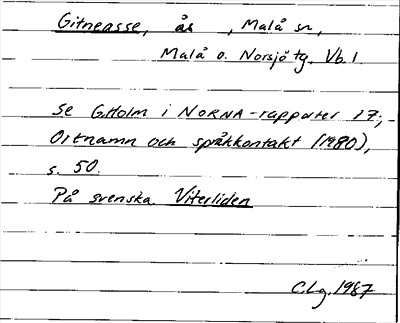 Gitneasse, ås , Malå sn,
Malå o. Norsjö tg. Vb. l
Se G.Holm i NORNA-rapporter 17,
Ortnamn och språkkontakt (1980),
s. 50.
På svenska Viterliden
C.Lg. 1987